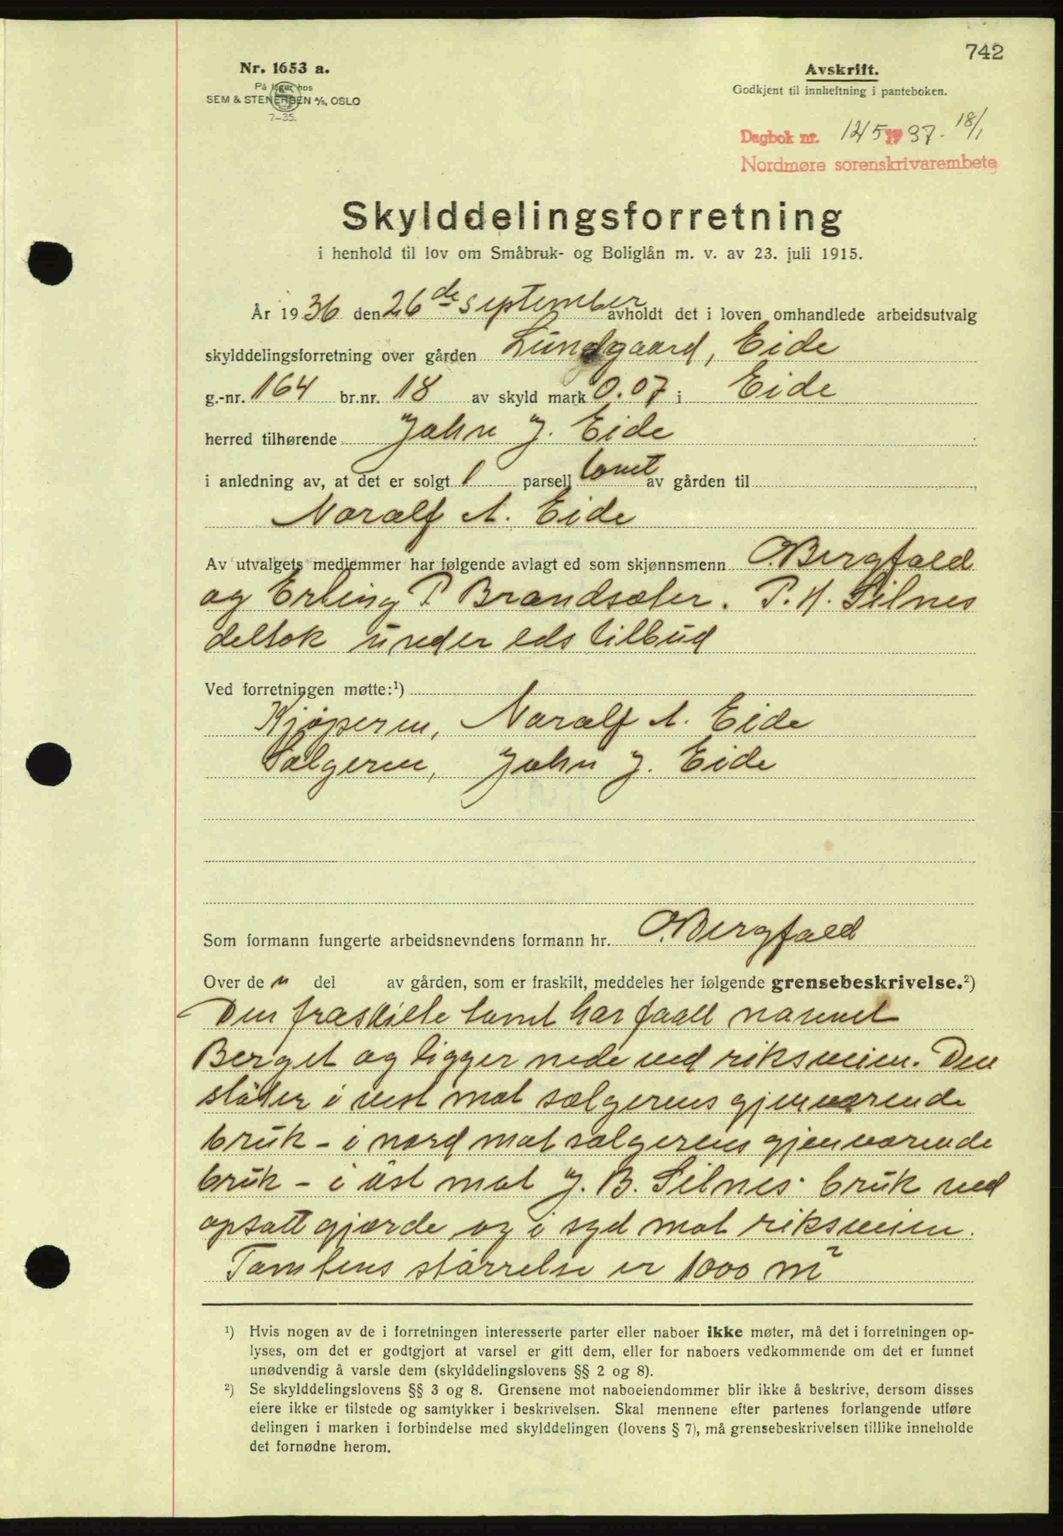 742
Nr. 1653 a.
På lager hos
SEM & STENERSEN A/S, OSLO
7-35.
Avskrift.
Godkjent til innheftning i panteboken.
Dagbok nr. 125 1937- 18/1
Nordmøre sorenskrivarembete
Skylddelingsforretning
i henhold til lov om Småbruk- og Boliglån m. v. av 23. juli 1915.
År 1936 den 26de september avholdt det i loven omhandlede arbeidsutvalg
skylddelingsforretning over gården Lundgaard, Eide
g.-nr. 164 br.nr. 18 av skyld mark 0.07 i Eide
herred tilhørende John J. Eide
i anledning av, at det er solgt 1 parsell tomt av gården til
Naralf A. Eide
Av utvalgets medlemmer har følgende avlagt ed som skjønnsmenn O. Bergfald
og Erling P. Brandsæter. P. H. Silnes
deltok under eds tilbud
Ved forretningen møtte:¹)
Kjøperen, Naralf A. Eide
Sælgeren, John J. Eide
Som formann fungerte arbeidsnevndens formann hr. O. Bergfald
Over den del av gården, som er fraskilt, meddeles her følgende grensebeskrivelse.²)
Den fraskilte tomt har faatt navnet
Berget og ligger nede ved riksveien. Den
støter i vest mot sælgerens gjenværende
bruk - i nord mot sælgerens gjenværende
bruk - i øst mot J. B. Silnes bruk ved
opsatt gjærde og i syd mot riksveien.
Tomtens størrelse er 1000 m²
¹) Hvis nogen av de i forretningen interesserte parter eller naboer ikke møter, må det i forretningen op-
lyses, om det er godtgjort at varsel er gitt dem, eller for naboers vedkommende om det er funnet
unødvendig å varsle dem (skylddelingslovens §§ 2 og 8).
²) Se skylddelingslovens §§ 3 og 8. Grensene mot naboeiendommer blir ikke å beskrive, dersom disses
eiere ikke er tilstede og samtykker i beskrivelsen. Skal mennene efter partenes forlangende utføre
delingen i marken i forbindelse med skylddelingen (lovens § 7), må grensebeskrivelsen tillike inneholde
det fornødne herom.